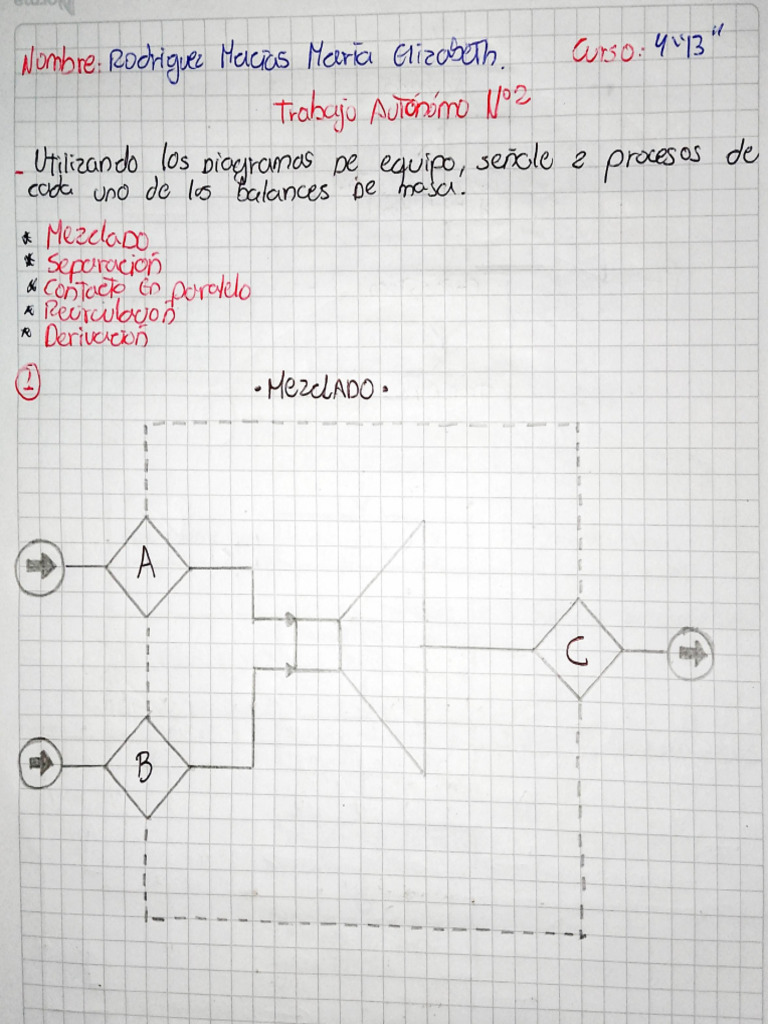 Nombre: Rodriguez Macias Maria Elizabeth. Curso: 4 "B"
Trabajo Autónomo Nº2
- Utilizando los Diagramas De equipo, señale 2 procesos de
cada uno de los balances De masa.
* Mezclado
* Separación
* Contacto En paralelo
* Recirculación
* Derivación
1 • Mezclado •
A
B
C